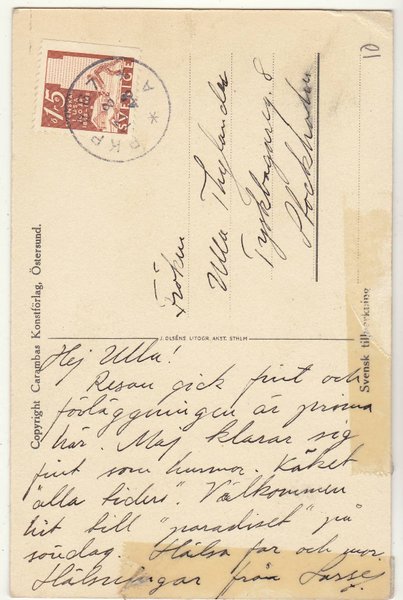 15
SVERIGE
PKP
10
Fröken
Ulla Thylander
Tyskbagareg. 8
Stockholm
Copyright Carambas Konstförlag, Östersund.
J. OLSÉNS LITOGR. ANST. STHLM
Svensk tillverkning
Hej Ulla!
Resan gick fint och
förläggningen är prima
här. Maj klarar sig
fint som husmor. Käket
"alla tiders". Välkommen
hit till "paradiset" på
söndag. Hälsa far och mor.
Hälsningar från Lasse